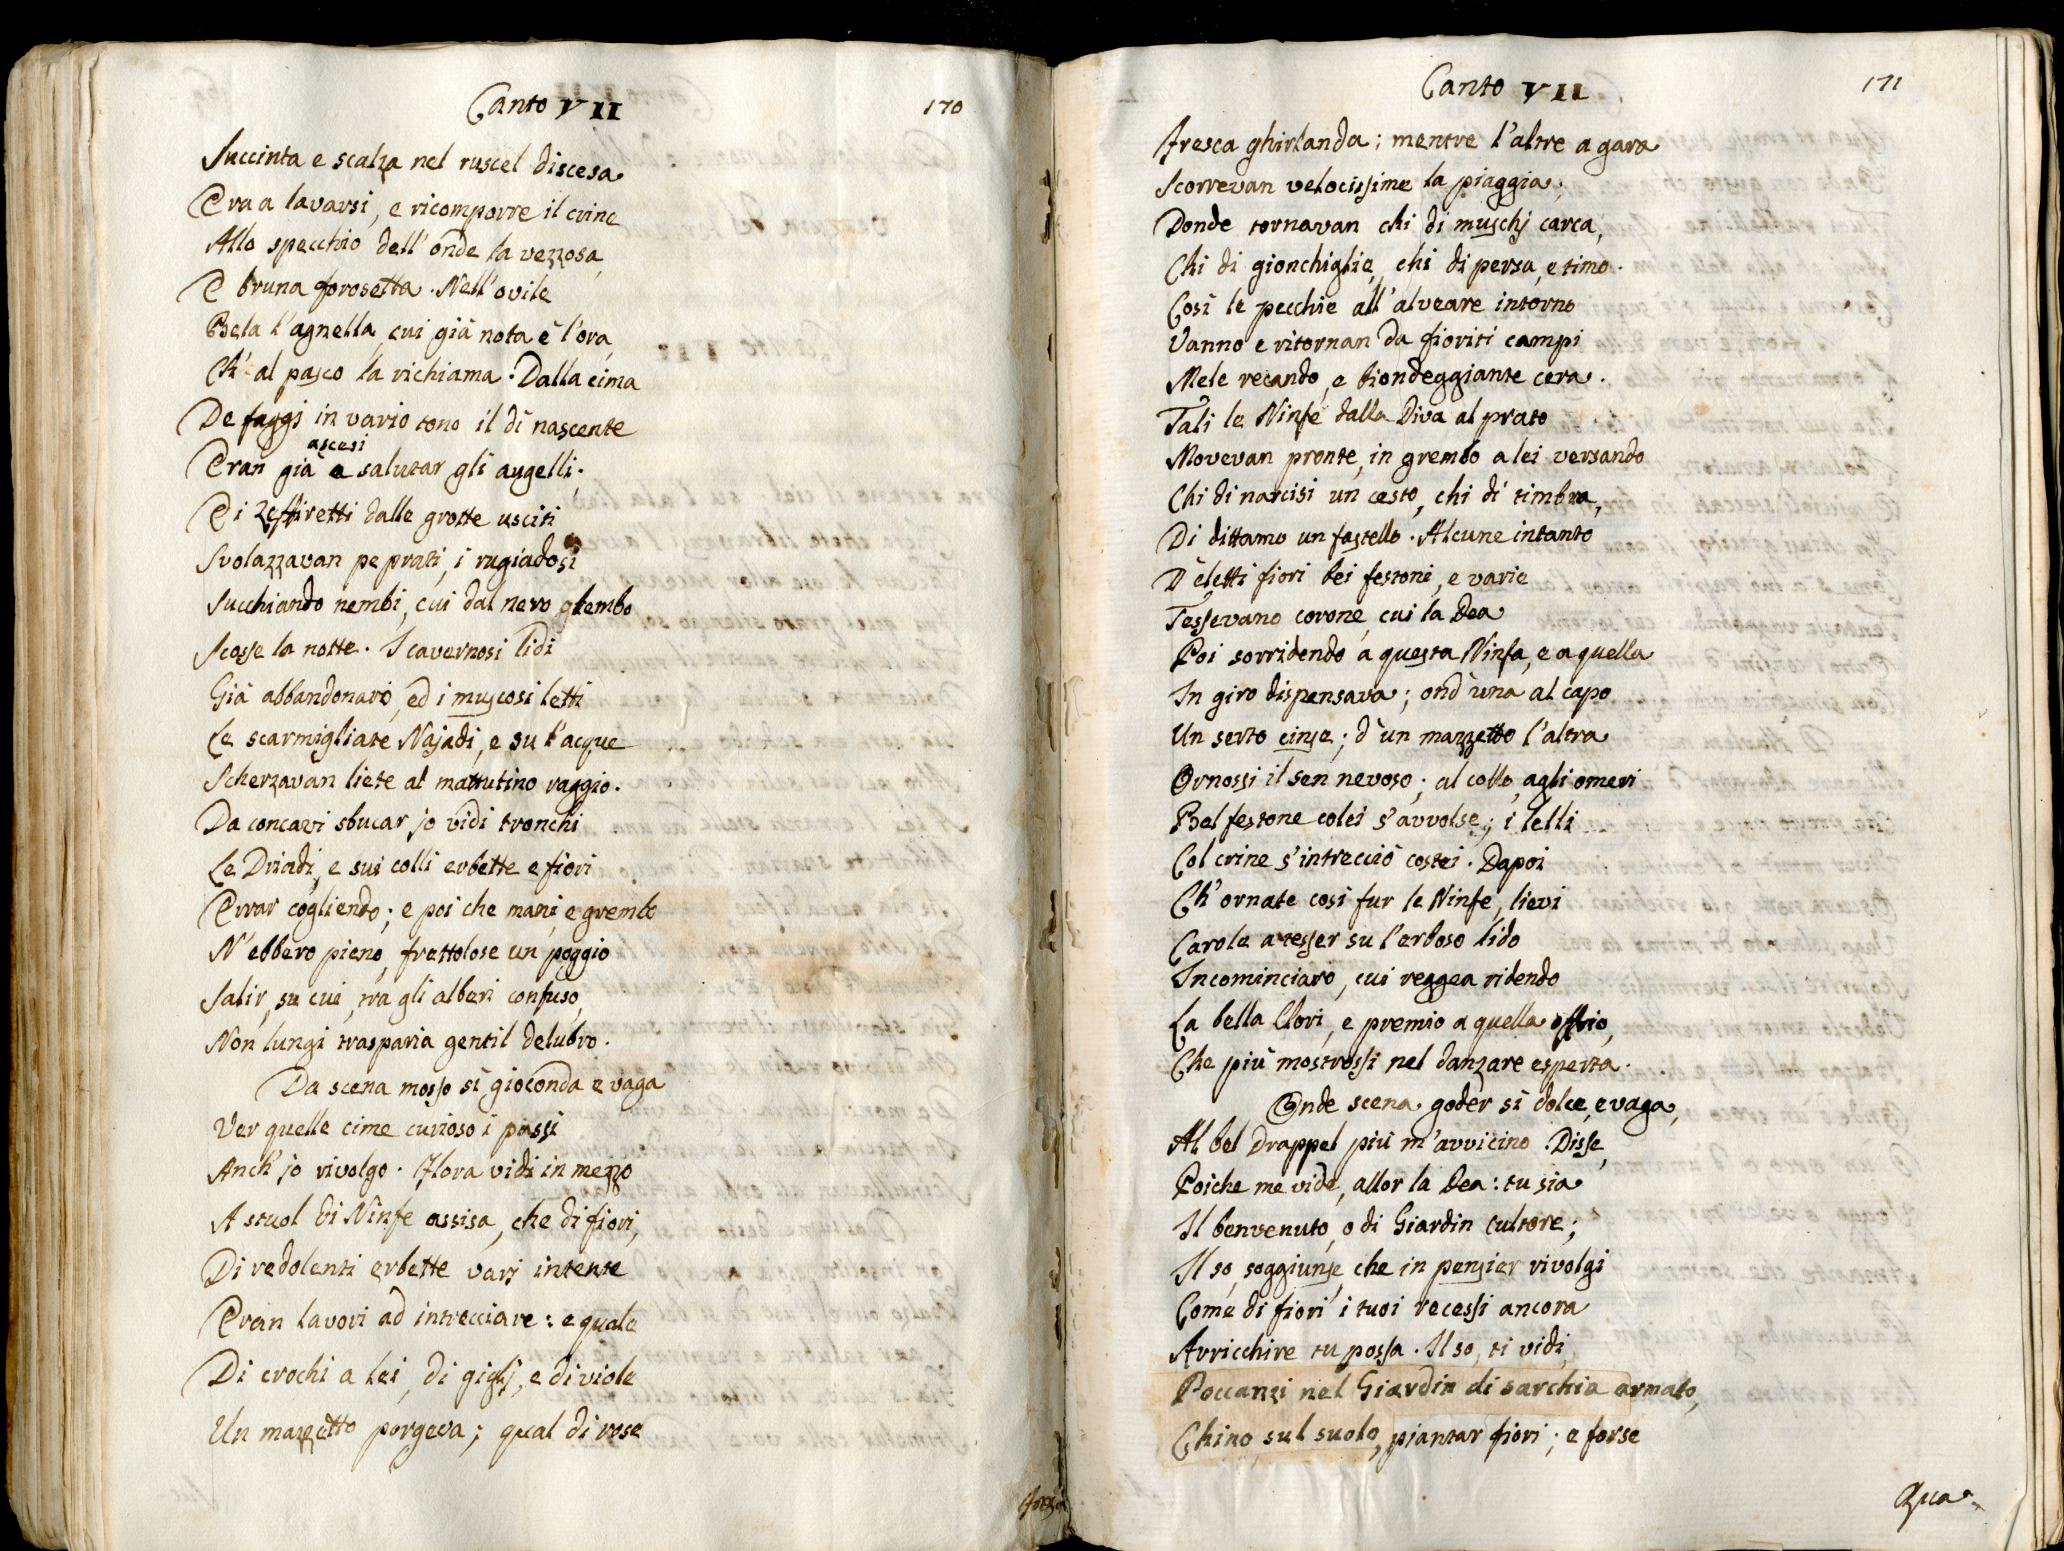 Canto VII
170
Succinta e scalza nel ruscel discesa
Era a lavarsi, e ricomporre il crine
Allo specchio dell'onde la vezzosa,
E bruna forosetta. Nell'ovile
Bela l'agnella, cui già nota è l'ora,
Ch'al pasco la richiama. Dalla cima
De faggj in vario tono il dì nascente
ascesi
Eran già a salutar gli augelli;
E i Zeffiretti dalle grotte usciti
Svolazzavan pe prati, i rugiadosi
Succhiando nembi, cui dal nero grembo
Scosse la notte. I cavernosi lidi
Già abbandonaro, ed i muscosi letti
Le scarmigliate Najadi, e su l'acque
Scherzavan liete al mattutino raggio.
Da concavi sbucar jo vidi tronchi
Le Driadi, e sui colli erbette e fiori
Errar cogliendo; e poi che mani, e grembo
N'ebbero pieno, frettolose un poggio
Salir, su cui, fra gli alberi confuso,
Non lungi trasparia gentil delubro.
Da scena mosso sì gioconda e vaga
Ver quelle cime curioso i passi
Anch'jo rivolgo. Flora vidi in mezzo
A stuol di Ninfe assisa, che di fiori,
Di redolenti erbette varj intente
Eran lavori ad intrecciare: e quale
Di crochi a lei, di giglj, e di viole
Un mazzetto porgeva; qual di rose
Fresca
Canto VII
171
Fresca ghirlanda; mentre l'altre a gara
Scorrevan velocissime la piaggia;
Donde tornavan chi di muschj carca,
Chi di gionchiglie, chi di persa, e timo.
Così le pecchie all'alveare intorno
Vanno e ritornan da fioriti campi
Mele recando, e biondeggiante cera.
Tali le Ninfe dalla Diva al prato
Movevan pronte, in grembo a lei versando
Chi di narcisi un cesto, chi di timbra,
Di dittamo un fastello. Alcune intanto
D'eletti fiori bei festoni, e varie
Tessevano corone, cui la Dea
Poi sorridendo a questa Ninfa, e a quella
In giro dispensava; ond'una al capo
Un serto cinse; d'un mazzetto l'altra
Ornossi il sen nevoso; al collo, agli omeri
Bel festone colei s'avvolse; i lelli
Col crine s'intrecciò costei. Dapoi
Ch'ornate così fur le Ninfe, lievi
Carole a tesser su l'erboso lido
Incominciaro, cui reggea ridendo
La bella Clori, e premio a quella offrio,
Che più mostrossi nel danzare esperta.
Onde scena goder sì dolce, e vaga,
Al bel drappel più m'avvicino. Disse,
Poiche me vide, allor la Dea: tu sia
Il benvenuto, o di Giardin cultore;
Il so, soggiunse, che in pensier rivolgi
Come di fiori i tuoi recessi ancora
Arricchire tu possa. Il so, ti vidi,
Poccanzi nel Giardin di sarchia armato,
Chino sul suolo, piantar fiori; e forse
Qua